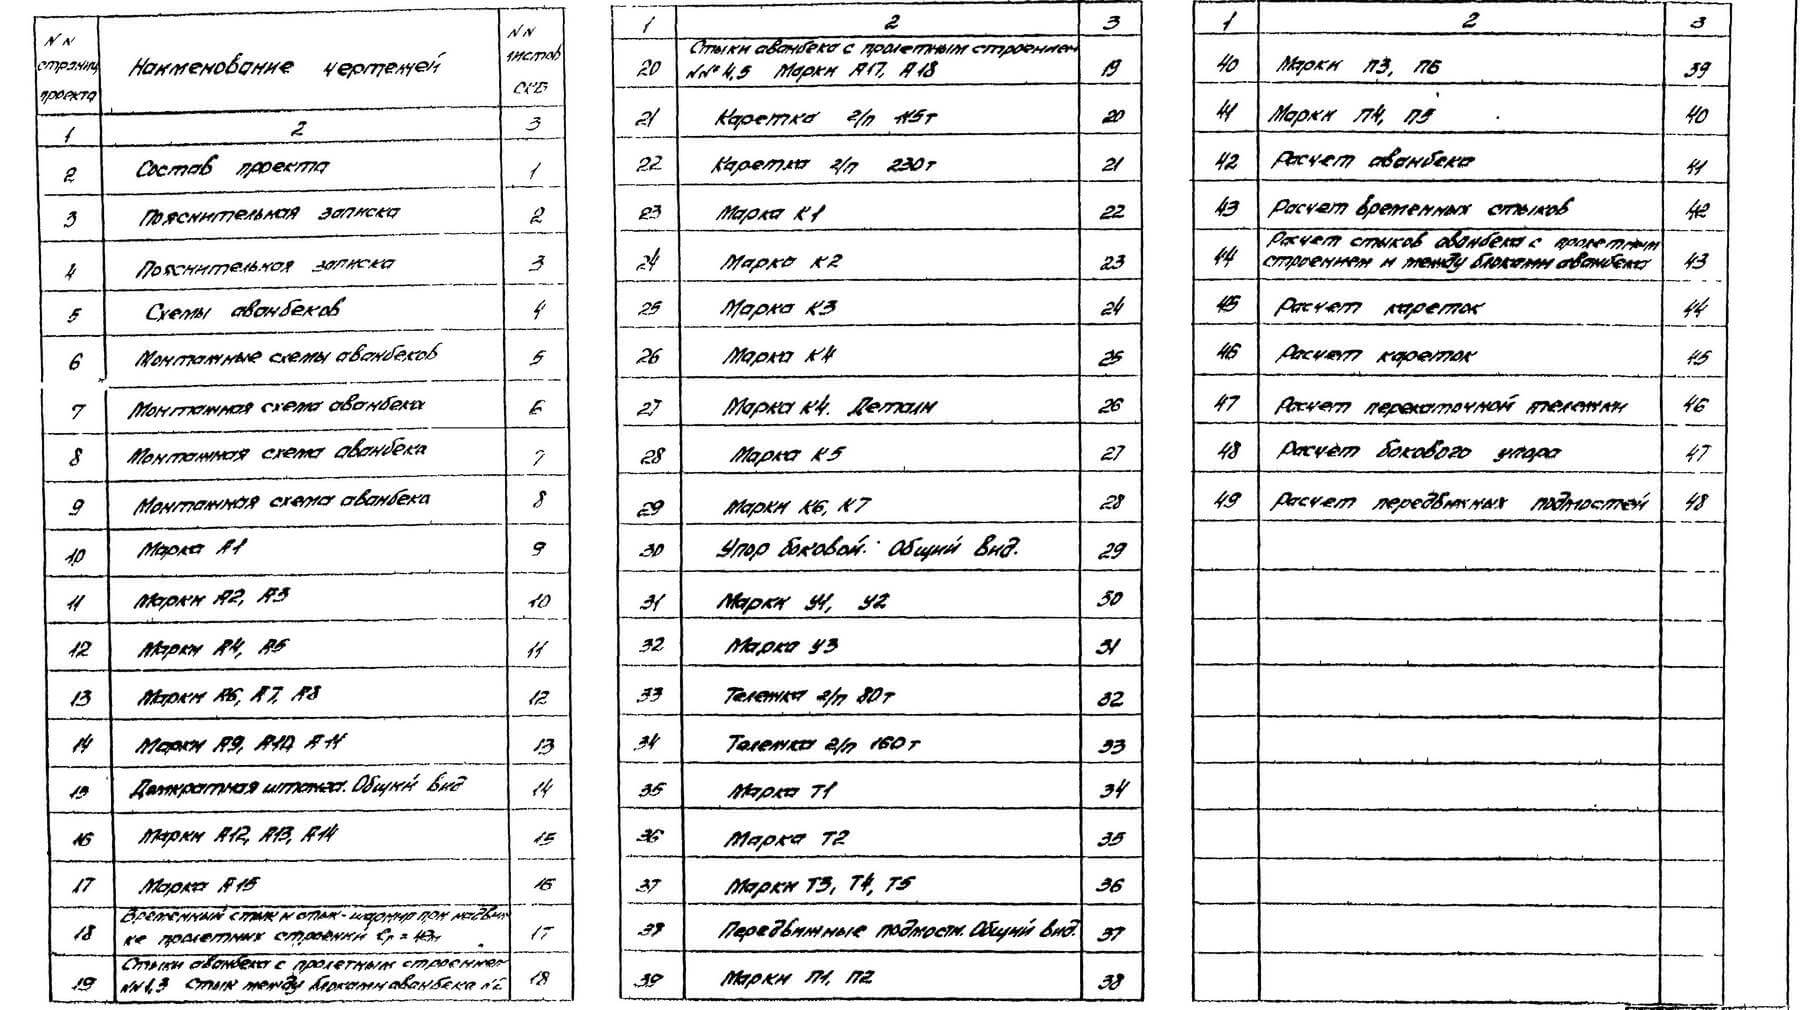 NN страниц проекта | Наименование чертежей | NN листов СКБ
1 | 2 | 3
2 | Состав проекта | 1
3 | Пояснительная записка | 2
4 | Пояснительная записка | 3
5 | Схемы аванбеков | 4
6 | Монтажные схемы аванбеков | 5
7 | Монтажная схема аванбека | 6
8 | Монтажная схема аванбека | 7
9 | Монтажная схема аванбека | 8
10 | Марка А1 | 9
11 | Марки А2, А3 | 10
12 | Марки А4, А5 | 11
13 | Марки А6, А7, А8 | 12
14 | Марки А9, А10, А11 | 13
15 | Домкратная штанга. Общий вид | 14
16 | Марки А12, А13, А14 | 15
17 | Марка А15 | 16
Временный стык и стык-шарнир при надвиж
18 | ке пролетных строений | 17
Стыки аванбека с пролетным строением
19 | NN 1,3 Стык между блоками аванбека N2 | 18
1 | 2 | 3
Стыки аванбека с пролетным строением
20 | NN° 4,5 Марки А17, А18 | 19
21 | Каретка г/п 115т | 20
22 | Каретка г/п 230т | 21
23 | Марка К1 | 22
24 | Марка К2 | 23
25 | Марка К3 | 24
26 | Марка К4 | 25
27 | Марка К4. Детали | 26
28 | Марка К5 | 27
29 | Марки К6, К7 | 28
30 | Упор боковой. Общий вид. | 29
31 | Марки У1, У2 | 30
32 | Марка У3 | 31
33 | Тележка г/п 80т | 32
34 | Тележка г/п 160т | 33
35 | Марка Т1 | 34
36 | Марка Т2 | 35
37 | Марки Т3, Т4, Т5 | 36
38 | Передвижные подмости. Общий вид. | 37
39 | Марки П1, П2 | 38
1 | 2 | 3
40 | Марки П3, П6 | 39
41 | Марки П4, П5 | 40
42 | Расчет аванбека | 41
43 | Расчет временных стыков | 42
Расчет стыков аванбека с пролетным
44 | строением и между блоками аванбека | 43
45 | Расчет кареток | 44
46 | Расчет кареток | 45
47 | Расчет перекаточной тележки | 46
48 | Расчет бокового упора | 47
49 | Расчет передвижных подмостей | 48